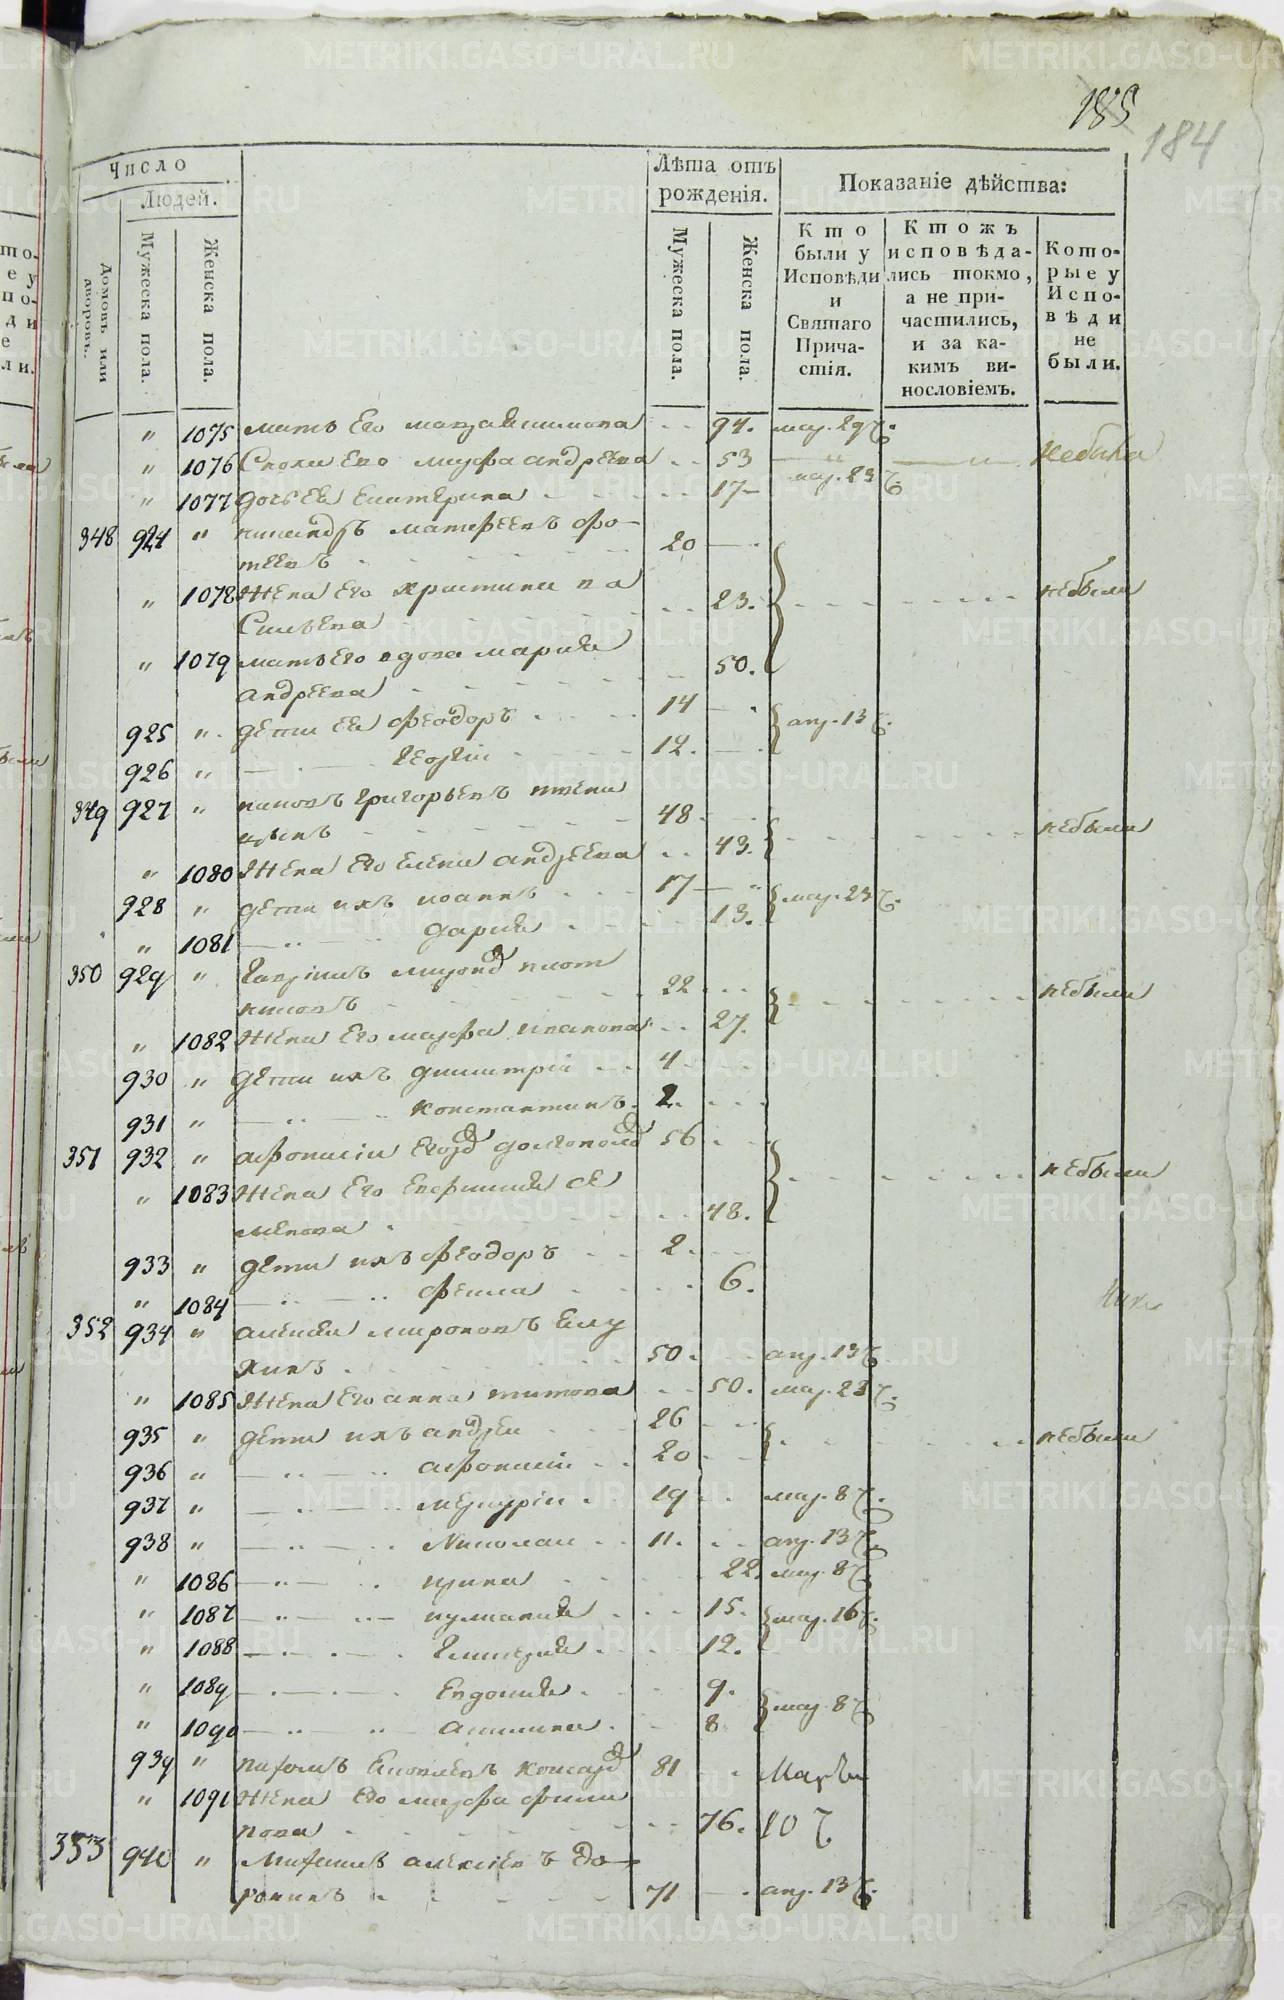 185
184
Число
Людей.
Домовъ или дворовъ.
Мужеска пола.
Женска пола.
Лѣта отъ рожденія.
Мужеска пола.
Женска пола.
Показаніе дѣйства:
Кто были у Исповѣди и Святаго Причастія.
Ктожъ исповѣдались токмо, а не причастились, и за какимъ винословіемъ.
Которые у Исповѣди не были.
" 1075 мать Его 94. мар. 29
" 1076 Сноха Его марфа андреева 53 небыла
" 1077 дочь Ея Екатерина 17 мар. 23
348 924 " никандръ матфеевъ фо-
теевъ 20
" 1078 Жена Его христина ва
Сильева 23. небыли
" 1079 мать Его вдова мария
андреева 50.
925 " дети Ея феодоръ 14 апр. 13
926 " Георгій 12.
349 927 " Григорьевъ пшени
цынъ 48 небыли
" 1080 Жена Его Елена андреева 43.
928 " дети ихъ иоаннъ 17 мар. 23
" 1081 дария 13.
350 929 " Гаврiилъ миронов плот
никовъ 22 небыли
" 1082 жена Его марфа иванова 27.
930 " дети ихъ димитрiй 4
931 " константинъ. 2.
351 932 " афонасiй Егоров долгополов 56 небыли
" 1083 Жена Его Евфимия се
менова 48.
933 " дети ихъ феодоръ 2.
" 1084 фекла 6.
352 934 " алексей мироновъ Елу
хинъ 50. апр. 13
" 1085 Жена Его анна титова 50. мар. 23
935 " дети ихъ андрей 26 небыли
936 " афонасiй 20
937 " меркурiй 19 мар. 8
938 " Николай 11. апр. 13
" 1086 ирина 22. мар. 8
" 1087 иулиания 15. мар. 16
" 1088 Гликерия 12.
" 1089 Евдокия 9. мар. 8
" 1090 акилина 8
939 " пахомъ Яковлевъ 81 Марта
" 1091 Жена Его марфа фили
пова 76. 10
353 940 " Михаилъ алексеевъ до-
ронинъ 71 апр. 13
METRIKI.GASO-URAL.RU